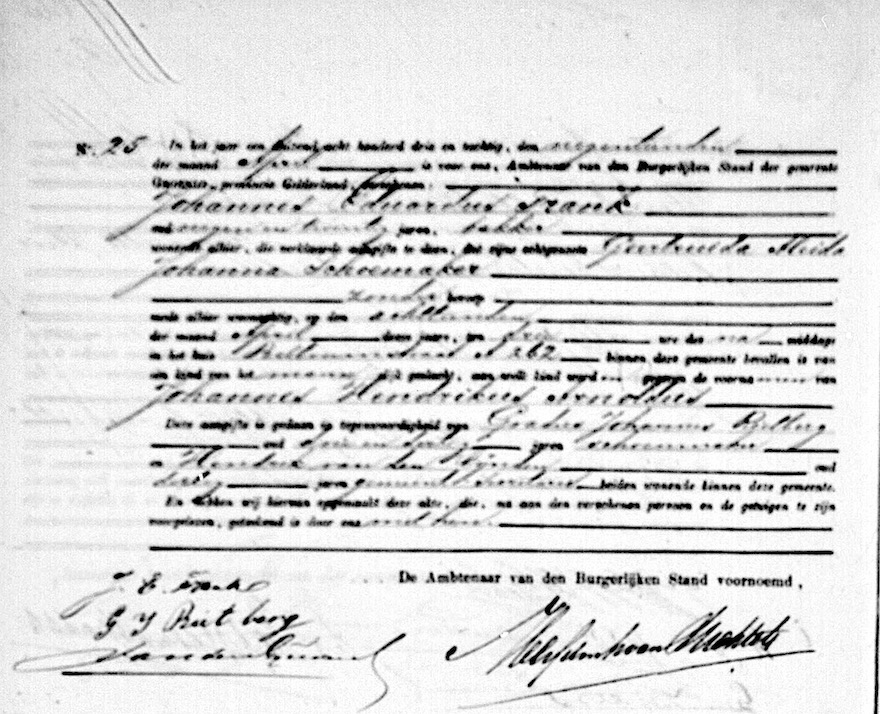 No. 25 In het jaar een duizend acht honderd drie en tachtig, den negentienden
der maand April is voor ons, Ambtenaar van den Burgerlijken Stand der gemeente
provincie Gelderland, verschenen:
Johannes Eduardus Frank
oud negen en twintig jaren, bakker
wonende alhier, die verklaarde aangifte te doen, dat zijne echtgenoote Geertruida Aleida
Johanna Schoemaker
zonder beroep
mede alhier woonachtig, op den achttienden
der maand April dezes jaars, ten drie ure des na middags
in het huis 262 binnen deze gemeente bevallen is van
een kind van het mannelijk geslacht, aan welk kind word gegeven de voornamen van
Johannes Hendrikus Arnoldus
Deze aangifte is gedaan in tegenwoordigheid van Gradus Johannes
oud drie en dertig jaren schoenmaker
en Hendrik van den oud
dertig jaren gemeente beiden wonende binnen deze gemeente.
En hebben wij hiervan opgemaakt deze akte, die, na aan den verschenen persoon en de getuigen te zijn
voorgelezen, geteekend is door ons met hen.
De Ambtenaar van den Burgerlijken Stand voornoemd,
J. E. Frank
G J Rietberg